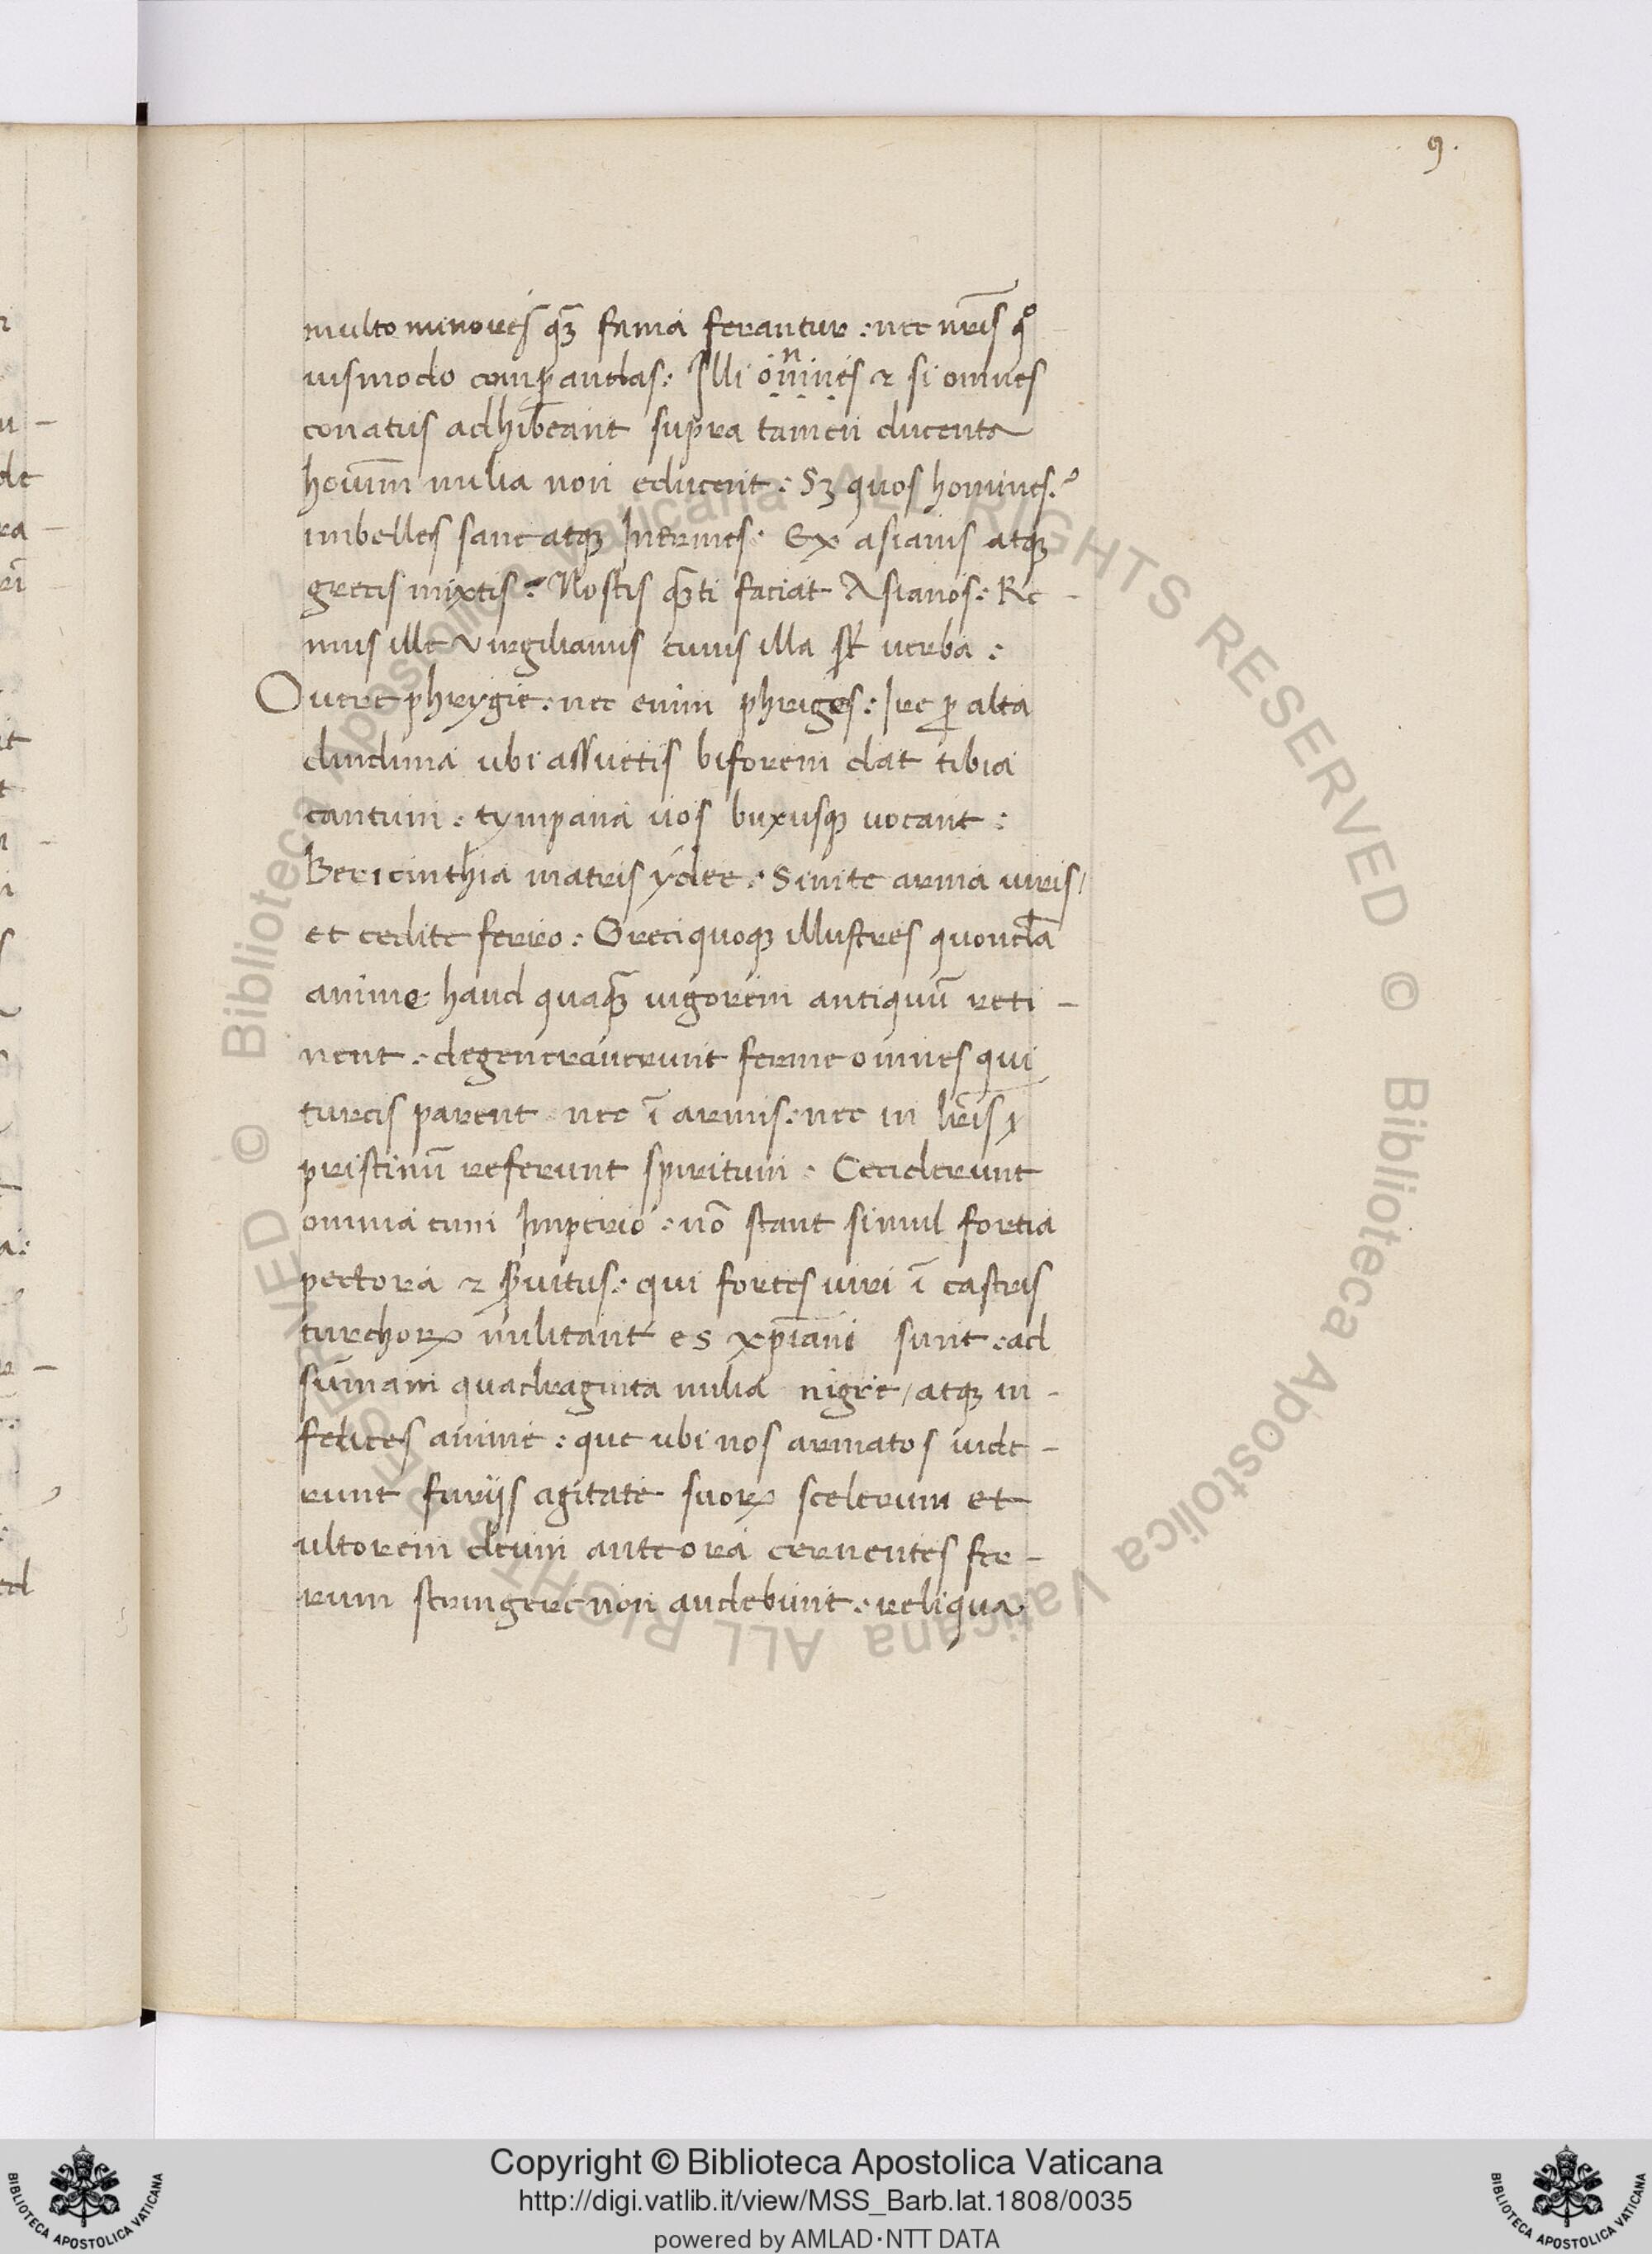 9.
multo minores qꝫ fama ferantur : nec nr̄is qͦ
uismodo comꝑandas : Illi on̄nes ⁊ si omnes
conatus adhibeant supra tamen ducenta
hoium̄ milia non educent : Sꝫ quos homines ?
imbelles sane atqꝫ Inermes · Ex asianis atqꝫ
grecis mixtis : Nostis qᷓti faciat Asianos : Re -
mus ille Virgilianus cuius illa st̄ uerba :
O uere phrygie : nec enim phriges : Ire ꝑ alta
dindima ubi assuetis biforem dat tibia
cantum : tympana uos buxusqꝫ uocant :
Bericinthia matris ydee : Sinite arma uiris /
et cedite ferro : Greci quoqꝫ illustres quondā
anime haud quaqꝫ̄ uigorem antiquū reti -
nent : degenerauerunt ferme omnes qui
turcis parent nec ī armis : nec in lr̄is
pristinū referunt spiritum : Ceciderunt
omnia cum Imperio : nō stant simul fortia
pectora ⁊ s̄uitus : qui fortes uiri ī castris
turchoꝝ militant es xp̄iani sunt : ad
sum̄am quadraginta milia nigre / atqꝫ in -
felices anime : que ubi nos armatos uide -
runt furijs agitate suoꝝ scelerum et
ultorem deum ante ora cernentes fer -
rum stringere non audebunt : reliqua
© Biblioteca Apostolica Vaticana ALL RIGHTS RESERVED © Biblioteca Apostolica Vaticana ALL RIGHTS RESERVED
Copyright © Biblioteca Apostolica Vaticana
http://digi.vatlib.it/view/MSS_Barb.lat.1808/0035
powered by AMLAD·NTT DATA
BIBLIOTECA APOSTOLICA VATICANA
BIBLIOTECA APOSTOLICA VATICANA